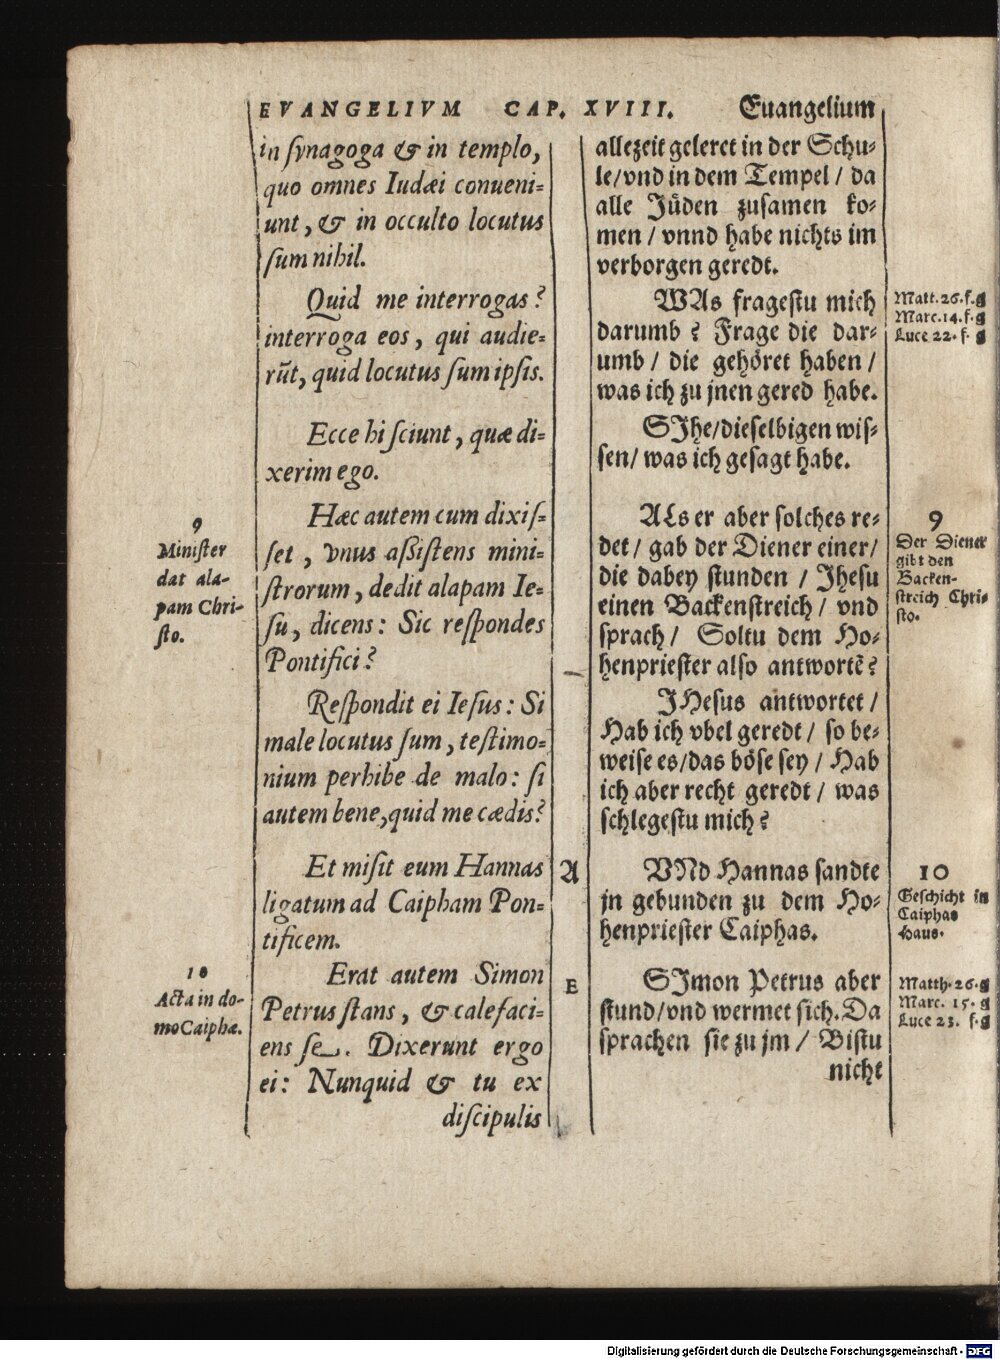 EVANGELIVM CAP. XVIII. Euangelium
in ſynagoga & in templo,
quo omnes Iudæi conueni⸗
unt, & in occulto locutus
ſum nihil.
Quid me interrogas?
interroga eos, qui audie⸗
rūt, quid locutus ſum ipſis.
Ecce hi ſciunt, quæ di⸗
xerim ego.
9
Miniſter
dat ala-
pam Chri-
ſto.
Hæc autem cum dixiſ⸗
ſet, vnus aßiſtens mini⸗
ſtrorum, dedit alapam Ie⸗
ſu, dicens: Sic reſpondes
Pontifici?
Reſpondit ei Ieſus: Si
male locutus ſum, teſtimo⸗
nium perhibe de malo: ſi
autem bene, quid me cædis?
Et miſit eum Hannas
ligatum ad Caipham Pon⸗
tificem.
10
Acta in do-
mo Caiphæ.
Erat autem Simon
Petrus ſtans, & calefaci⸗
ens ſe. Dixerunt ergo
ei: Nunquid & tu ex
diſcipulis
A
E
allezeit geleret in der Schu⸗
le/vnd in dem Tempel / da
alle Jüden zuſamen ko⸗
men / vnnd habe nichts im
verborgen geredt.
WAs frageſtu mich
darumb? Frage die dar⸗
umb / die gehöret haben /
was ich zu jnen gered habe.
SIhe/dieſelbigen wiſ⸗
ſen/ was ich geſagt habe.
ALs er aber ſolches re⸗
det/ gab der Diener einer/
die dabey ſtunden / Jheſu
einen Backenſtreich/ vnd
ſprach/ Soltu dem Ho⸗
henprieſter alſo antwortē?
JHeſus antwortet /
Hab ich vbel geredt/ ſo be⸗
weiſe es/das böſe ſey / Hab
ich aber recht geredt / was
ſchlegeſtu mich?
VNd Hannas ſandte
jn gebunden zu dem Ho⸗
henprieſter Caiphas.
SImon Petrus aber
ſtund/vnd wermet ſich. Da
ſprachen ſie zu jm / Biſtu
nicht
Matt. 26. f. g
Marc. 14. f. g
Luce 22. f. g
9
Der Diener
gibt den
Backen-
ſtreich Chri-
ſto.
10
Geſchicht in
Caiphas
Haus.
Matth. 26. g
Marc. 15. g
Luce 23. f. g
Digitalisierung gefördert durch die Deutsche Forschungsgemeinschaft - DFG